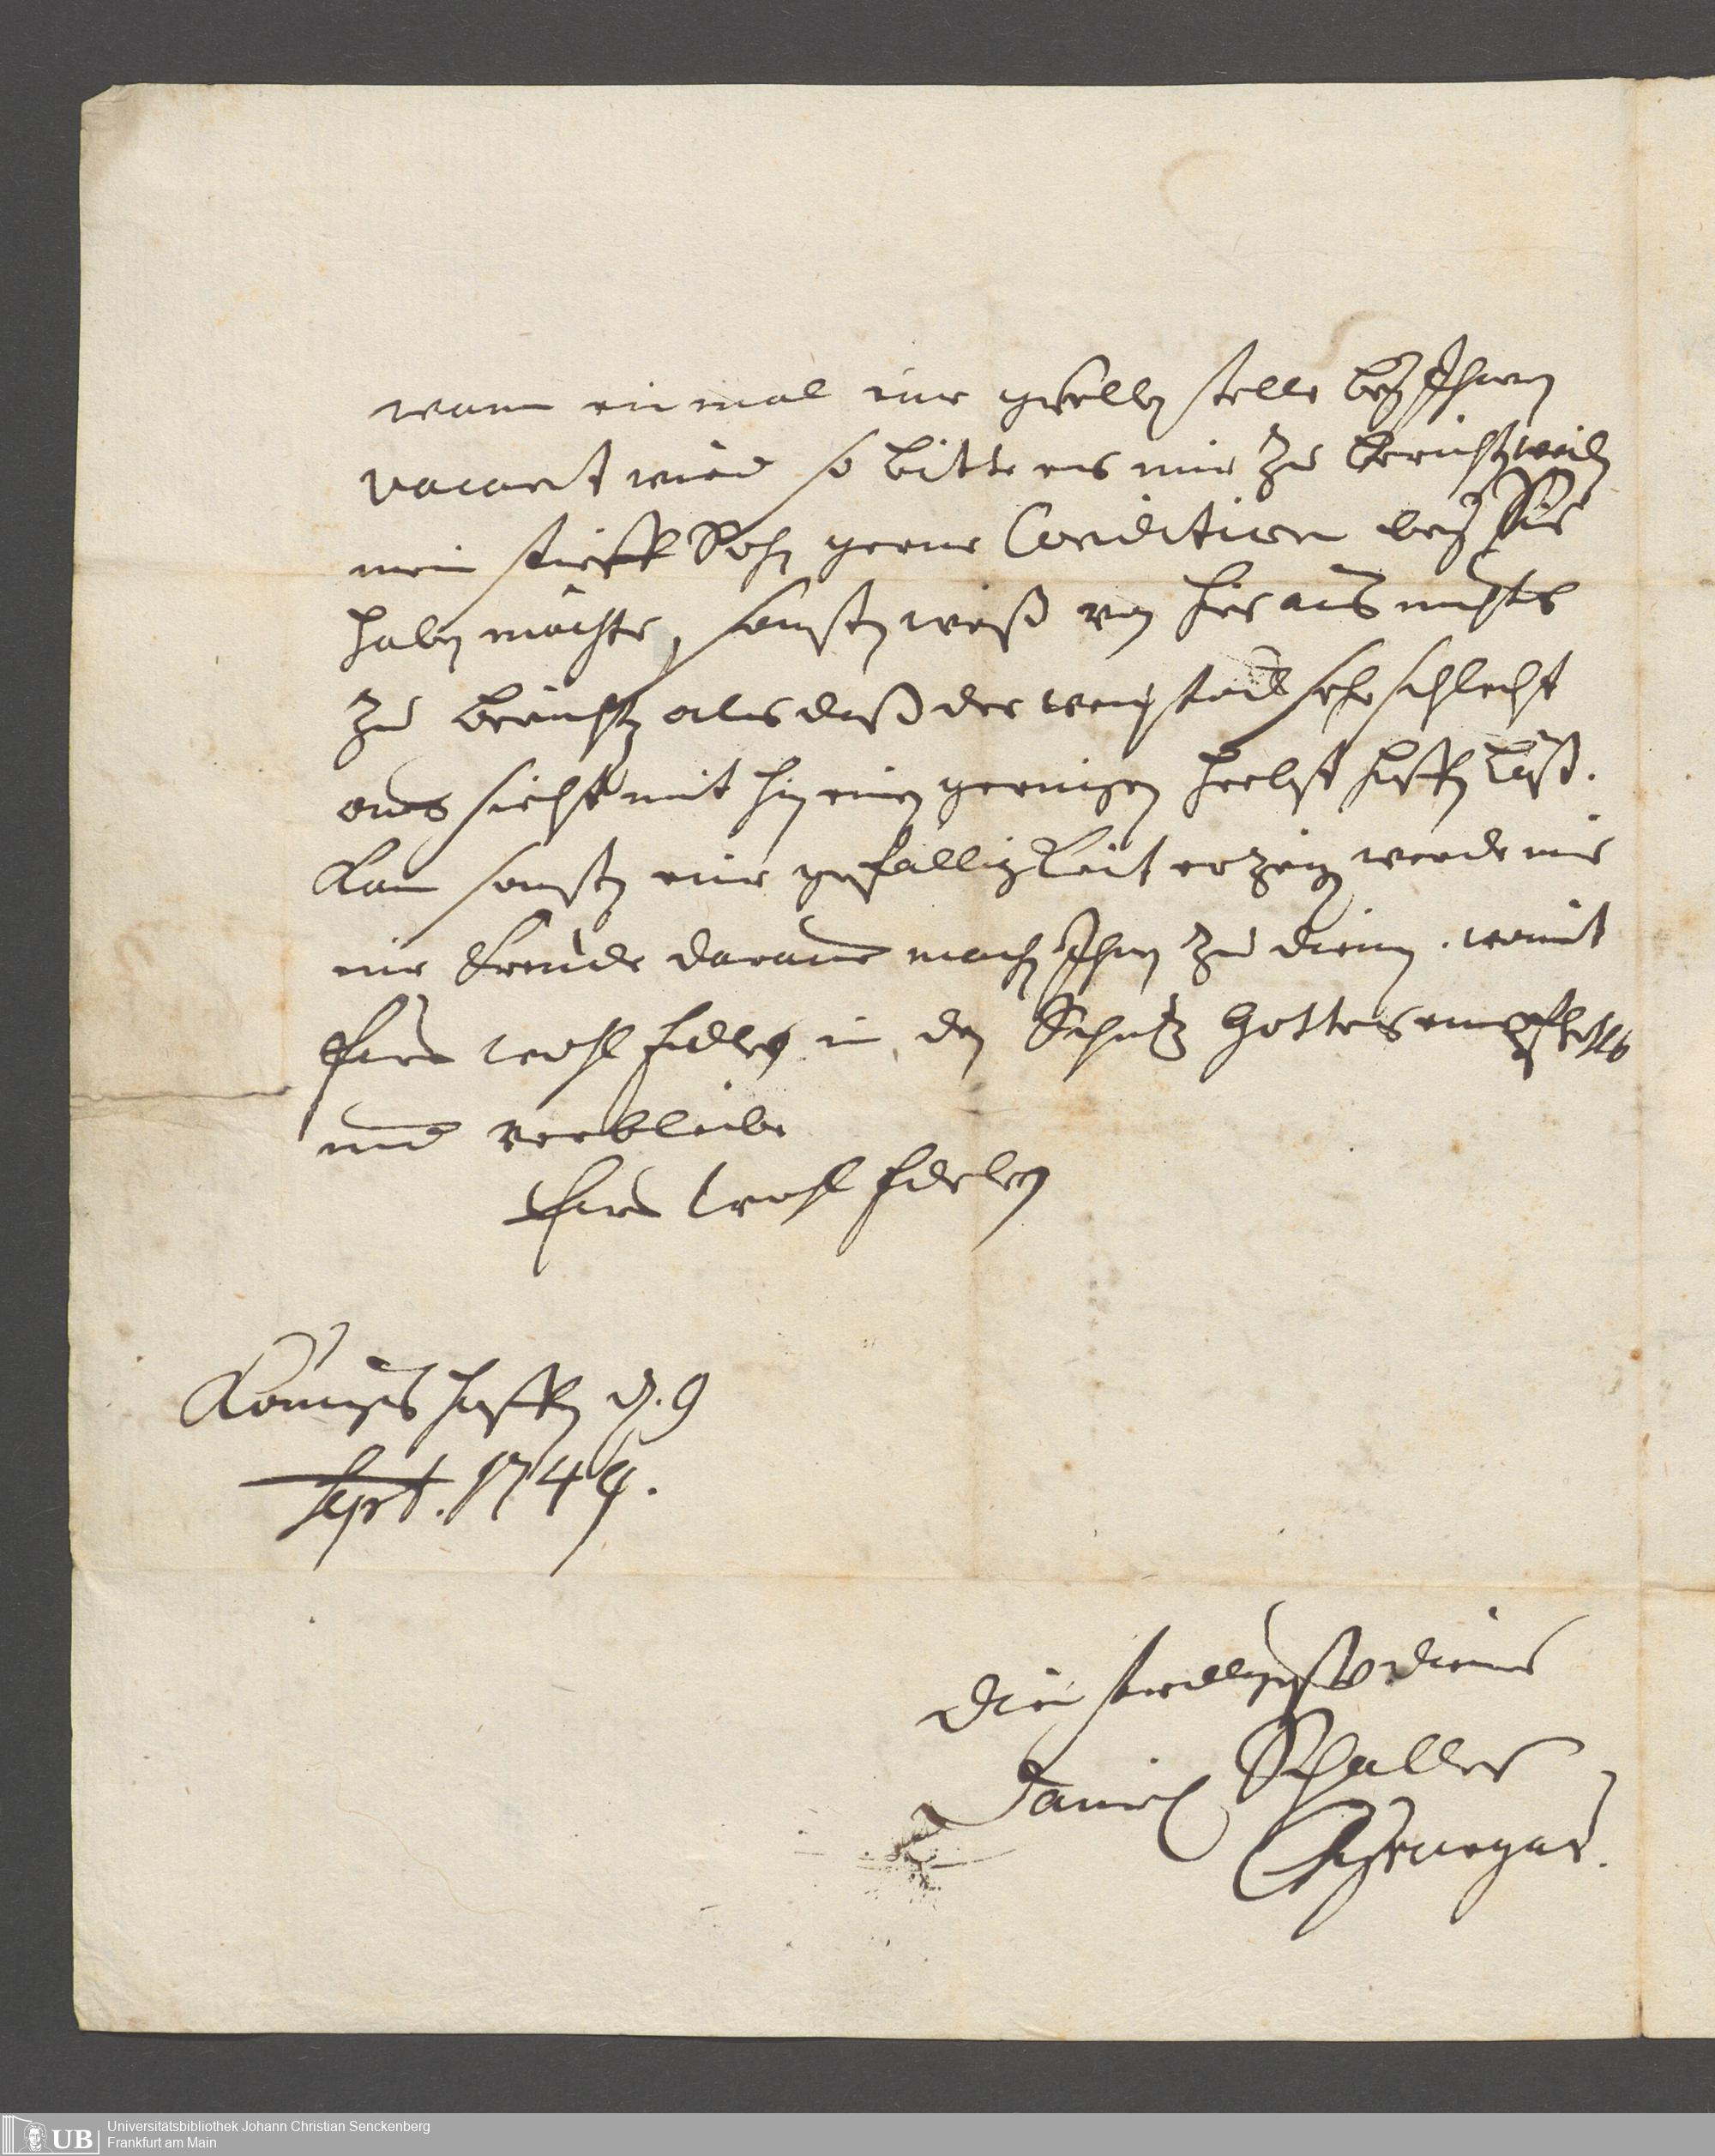 wann einmal eine gesellen stelle bey Ihnen
vacant wird so bitte es mir zu berichten weilen
mein stieff Sohn gerne Condition bey Sie
haben möchte, sonsten weiß von hier aus nichts
zu berichten als daß der wein stock sehr schlecht
aus sieht mit hin einen geringen Herbst hoffen läßt.
Kann sonsten eine gefälligkeit erzeigen werde mir
eine Freude daraus machen Ihnen zu dienen. womit
Euer Wohl Edlen in den Schutz Gottes empfehle
und verbleibe
Euer Wohl Edlen
Königs hoffen d. 9
Sept. 1749.
dienstwilligster diener
Daniel Schaller
Chirurgus.
Universitätsbibliothek Johann Christian Senckenberg
Frankfurt am Main
UB